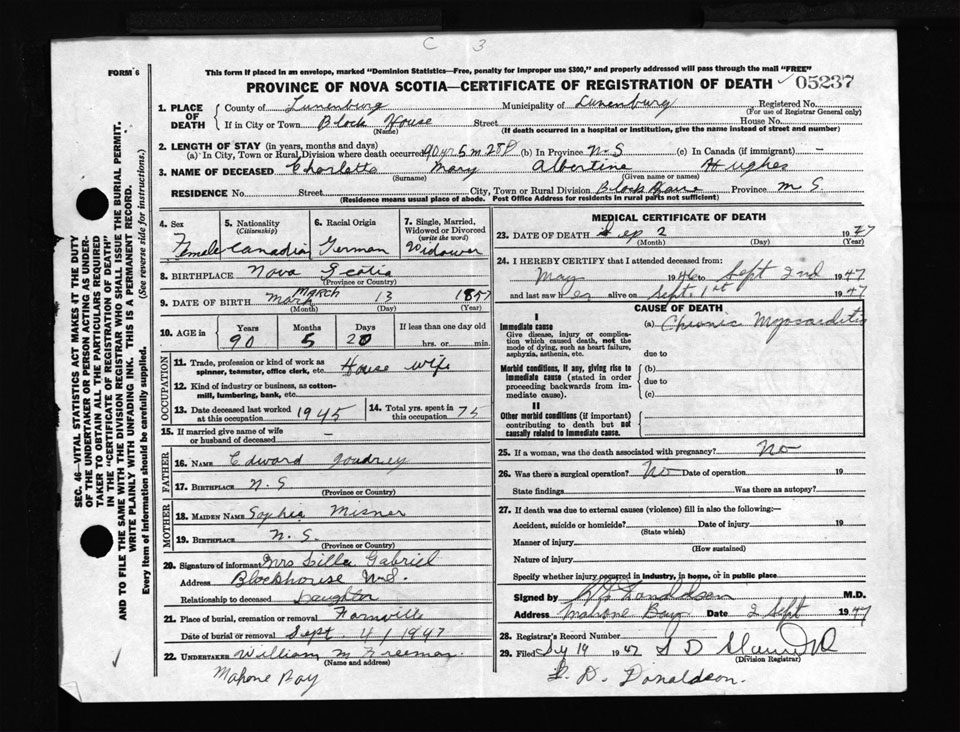 C 3
FORM 6
This form if placed in an envelope, marked "Dominion Statistics—Free, penalty for improper use $300," and properly addressed will pass through the mail "FREE"
PROVINCE OF NOVA SCOTIA—CERTIFICATE OF REGISTRATION OF DEATH 05237
1. PLACE OF DEATH
County of Lunenburg Municipality of Lunenburg Registered No.
(For use of Registrar General only)
If in City or Town Block House Street House No.
(Name) (If death occurred in a hospital or institution, give the name instead of street and number)
2. LENGTH OF STAY (in years, months and days)
(a) In City, Town or Rural Division where death occurred 90 yr 5 m 28 D (b) In Province N-S (c) In Canada (if immigrant) -
3. NAME OF DECEASED Charlotte Mary Albertine Hughes
(Surname) (Given name or names)
RESIDENCE No. Street City, Town or Rural Division Block House Province N S.
(Residence means usual place of abode. Post Office Address for residents in rural parts not sufficient)
4. Sex 5. Nationality 6. Racial Origin 7. Single, Married, Widowed or Divorced
(Citizenship) (write the word)
Female Canadian German Widower
8. BIRTHPLACE Nova Scotia
(Province or Country)
9. DATE OF BIRTH MARCH 13 1857
(Month) (Day) (Year)
10. AGE in Years Months Days If less than one day old
90 5 20 hrs. or min.
OCCUPATION
11. Trade, profession or kind of work as spinner, teamster, office clerk, etc. House wife
12. Kind of industry or business, as cotton-mill, lumbering, bank, etc.
13. Date deceased last worked at this occupation 1945
14. Total yrs. spent in this occupation 75
15. If married give name of wife or husband of deceased -
FATHER
16. NAME Edward
17. BIRTHPLACE N. S
(Province or Country)
MOTHER
18. MAIDEN NAME Sophia Misner
19. BIRTHPLACE N. S.
(Province or Country)
20. Signature of informant Mrs Silla Gabriel
Address Blockhouse N.S.
Relationship to deceased Daughter
21. Place of burial, cremation or removal Farnville
Date of burial or removal Sept. 4/1947
22. UNDERTAKER William M Freeman.
(Name and address)
Mahone Bay
MEDICAL CERTIFICATE OF DEATH
23. DATE OF DEATH Sep 2 1947
(Month) (Day) (Year)
24. I HEREBY CERTIFY that I attended deceased from:
May 1946 to Sept 2nd 1947
and last saw her alive on Sept. 1st 1947
CAUSE OF DEATH
I
Immediate cause
Give disease, injury or complication which caused death, not the mode of dying, such as heart failure, asphyxia, asthenia, etc.
(a) Chronic Myocarditis
due to
Morbid conditions, if any, giving rise to immediate cause (stated in order proceeding backwards from immediate cause).
(b)
due to
(c)
II
Other morbid conditions (if important) contributing to death but not causally related to immediate cause.
25. If a woman, was the death associated with pregnancy? No
26. Was there a surgical operation? No Date of operation 19
State findings Was there an autopsy?
27. If death was due to external causes (violence) fill in also the following:—
Accident, suicide or homicide? Date of injury 19
(State which)
Manner of injury
(How sustained)
Nature of injury
Specify whether injury occurred in industry, in home, or in public place
Signed by Donaldson M.D.
Address Mahone Bay Date 2 Sept 1947
28. Registrar's Record Number
29. Filed 19 1947
(Division Registrar)
D. Donaldson.
SEC. 46—VITAL STATISTICS ACT MAKES IT THE DUTY
OF THE UNDERTAKER OR PERSON ACTING AS UNDER-
TAKER TO OBTAIN ALL THE PARTICULARS REQUIRED
IN THE "CERTIFICATE OF REGISTRATION OF DEATH"
AND TO FILE THE SAME WITH THE DIVISION REGISTRAR WHO SHALL ISSUE THE BURIAL PERMIT.
WRITE PLAINLY WITH UNFADING INK. THIS IS A PERMANENT RECORD.
Every item of information should be carefully supplied. (See reverse side for instructions.)